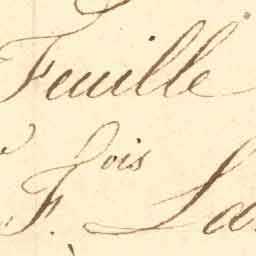 Feuille
F.ois La